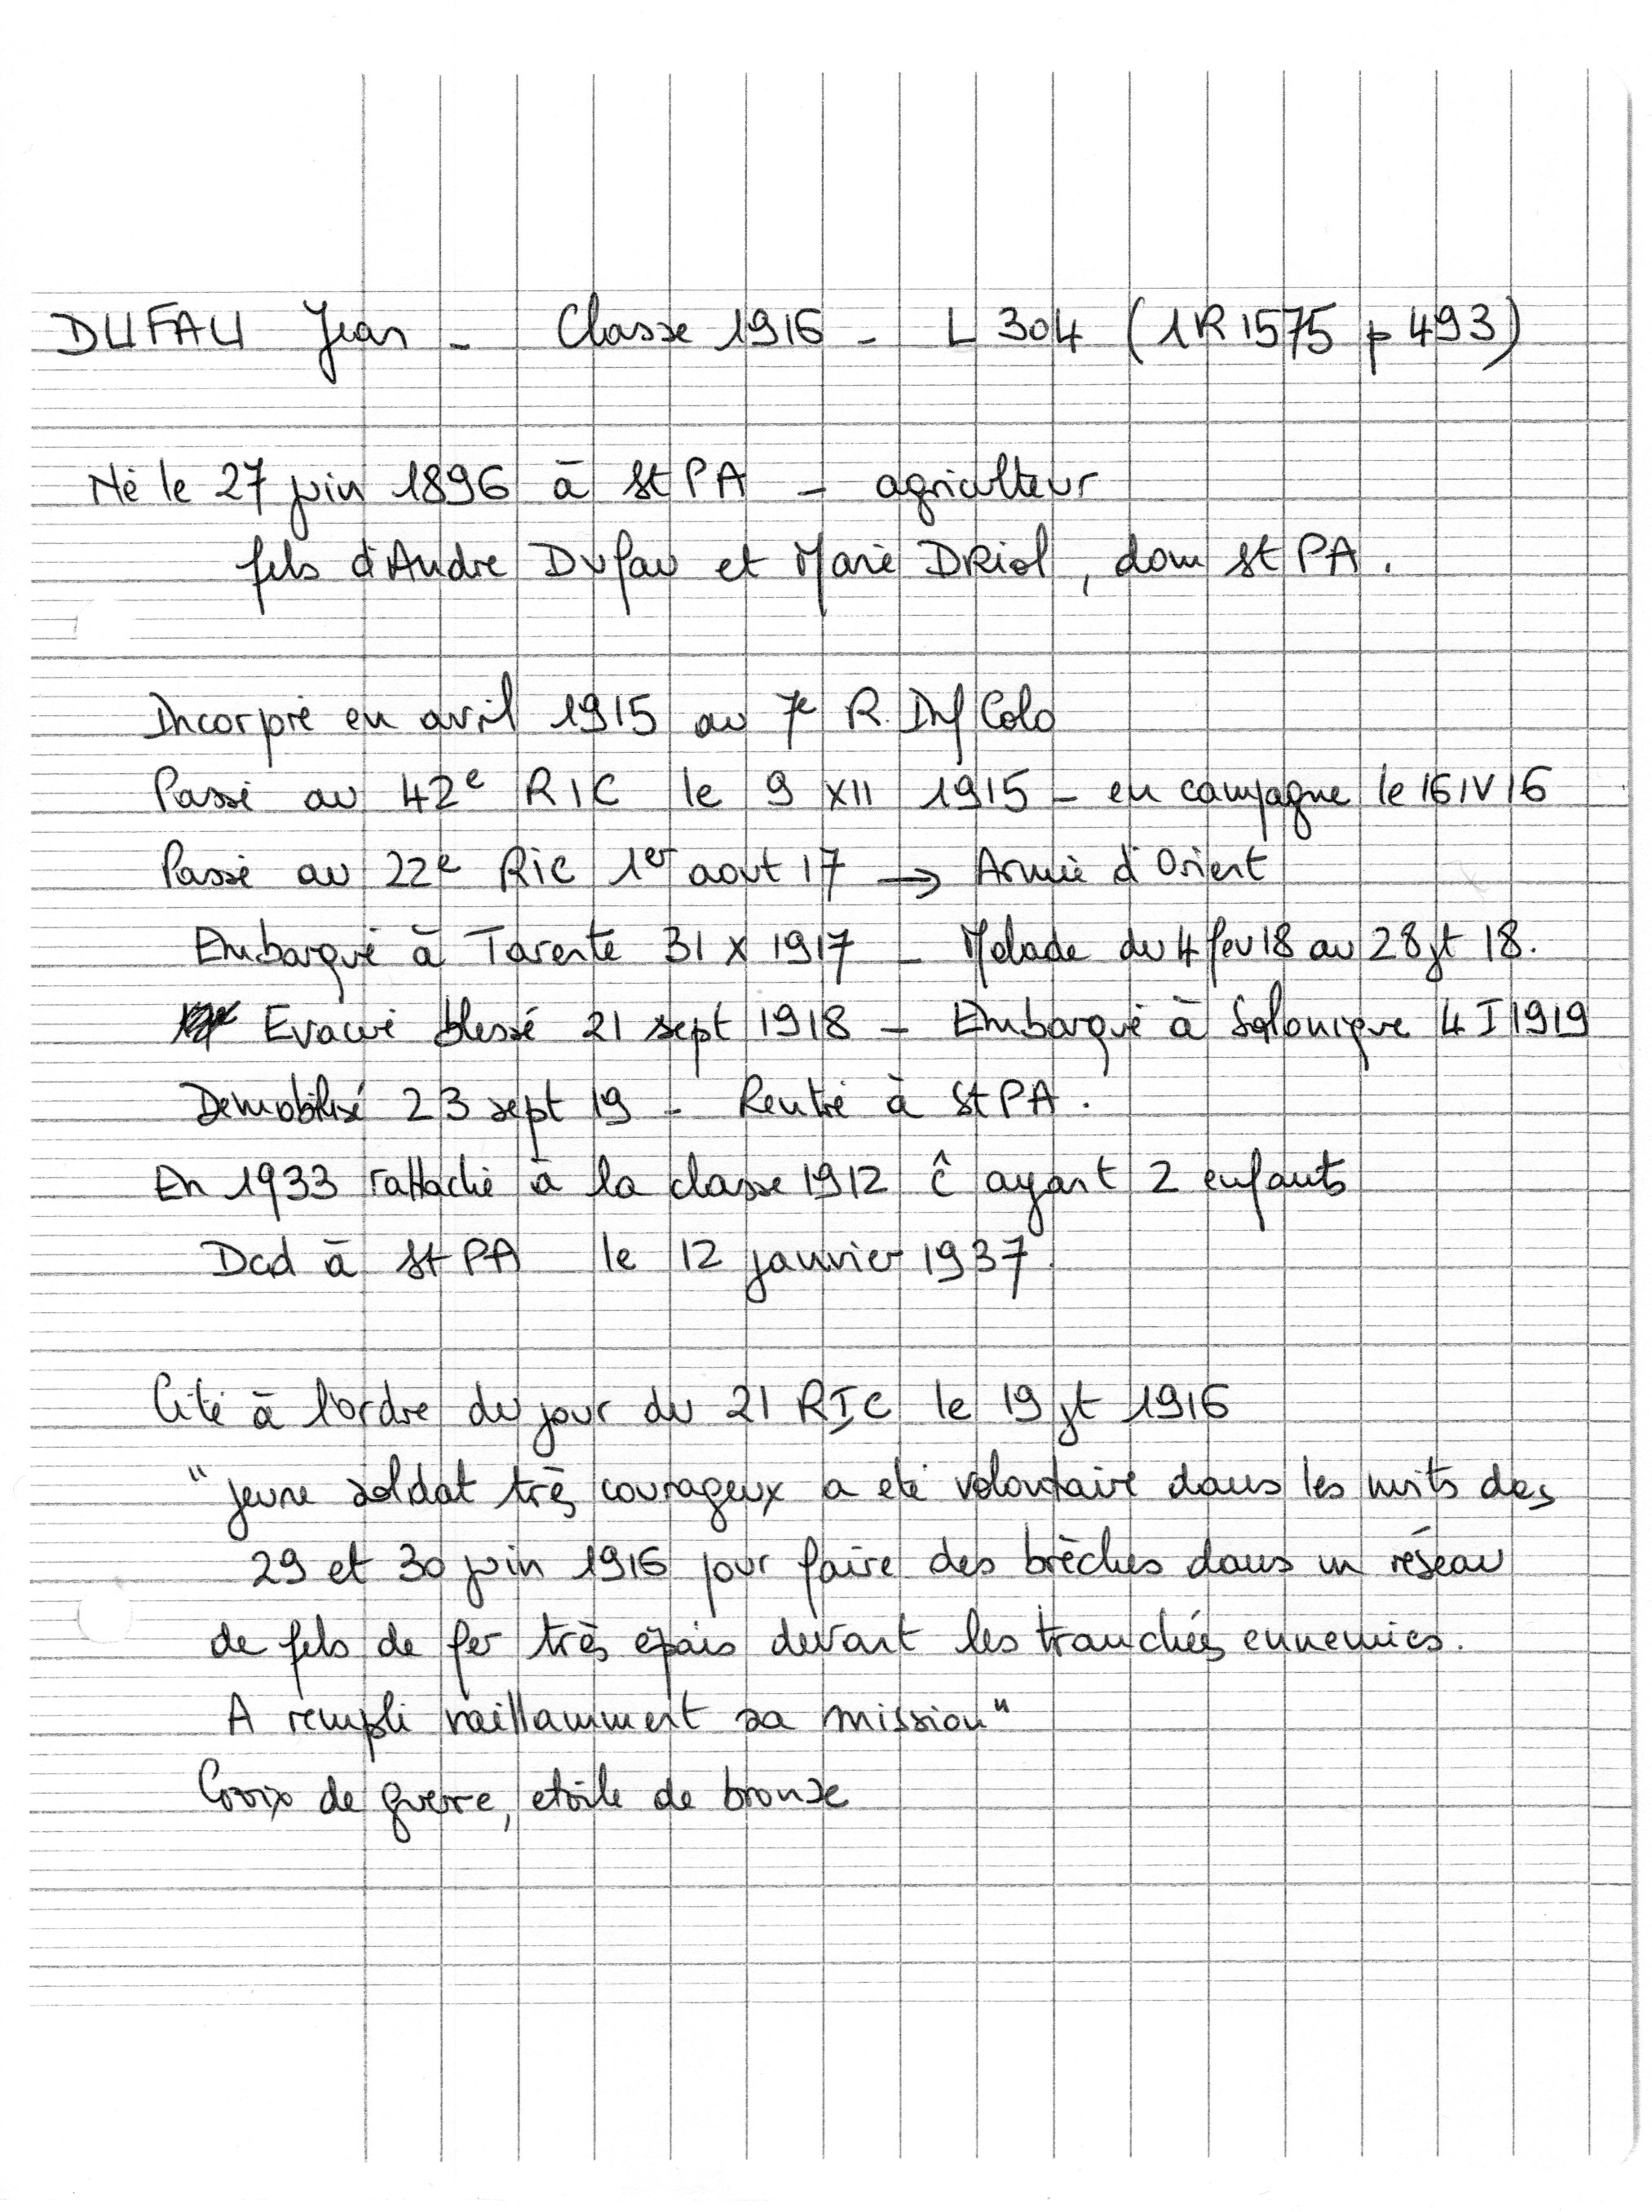 DUFAU Jean - Classe 1916 - L 304 (1R1575 p 493)
Né le 27 juin 1896 à St PA - agriculteur
fils d'Andre Dufau et Marie DRiol, dom St PA.
Incorpré en avril 1915 au 7e R. Inf Colo
Passé au 42e RIC le 9 XII 1915 - en campagne le 16 IV 16
Passé au 22e RIC 1er aout 17 → Armée d'Orient
Embarqué à Tarente 31 X 1917 - Malade du 4 fev 18 au 28 jt 18.
Evacué blessé 21 sept 1918 - Embarqué à Salonique 4 I 1919
Demobilisé 23 sept 19 - Rentré à St PA.
En 1933 rattaché à la classe 1912 ĉ ayant 2 enfants
Dcd à St PA le 12 janvier 1937.
Cité à l'ordre du jour du 21 RIC le 19 jt 1916
"jeune soldat très courageux a eté volontaire dans les nuits des
29 et 30 juin 1916 pour faire des brèches dans un réseau
de fils de fer très épais devant les tranchées ennemies.
A rempli vaillamment sa mission"
Croix de guerre, etoile de bronze